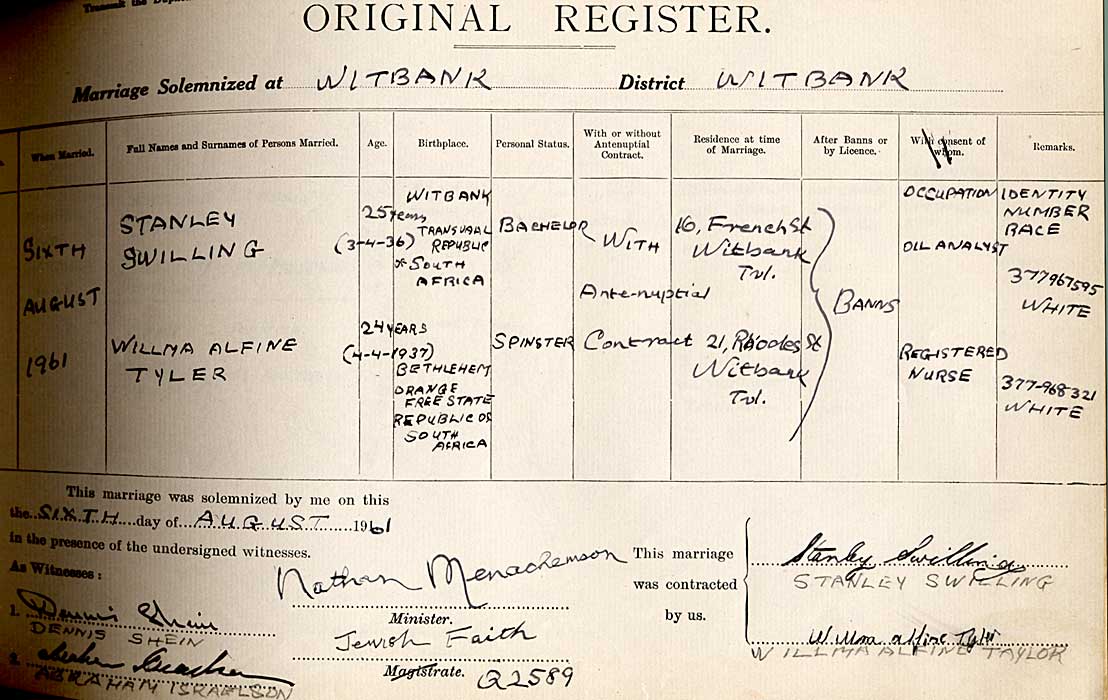 Transmit the
ORIGINAL REGISTER.
Marriage Solemnized at WITBANK District WITBANK
When Married.
Full Names and Surnames of Persons Married.
Age.
Birthplace.
Personal Status.
With or without
Antenuptial
Contract.
Residence at time
of Marriage.
After Banns or
by Licence.
With consent of
whom.
Remarks.
SIXTH
AUGUST
1961
STANLEY
SWILLING
25 years
(3-4-36)
WITBANK
TRANSVAAL
REPUBLIC
SOUTH
AFRICA
BACHELOR
WITH
Ante-nuptial
Contract
16, French St
Witbank
Tvl.
BANNS
OCCUPATION
OIL ANALYST
IDENTITY
NUMBER
RACE
377967595
WHITE
WILLMA ALFINE
TYLER
24 YEARS
(4-4-1937)
BETHLEHEM
ORANGE
FREE STATE
REPUBLIC OF
SOUTH
AFRICA
SPINSTER
21, Rhodes St
Witbank
Tvl.
REGISTERED
NURSE
377-968321
WHITE
This marriage was solemnized by me on this
the SIXTH day of AUGUST 1961
in the presence of the undersigned witnesses.
As Witnesses:
1. Dennis Shein
DENNIS SHEIN
2.
ABRAHAM ISRAELSON
Nathan Menachemson
Minister.
Jewish Faith
Magistrate. Q2589
This marriage
was contracted
by us.
Stanley Swilling
STANLEY SWILLING
Willma Alfine Tyler
WILLMA ALFINE TAYLOR